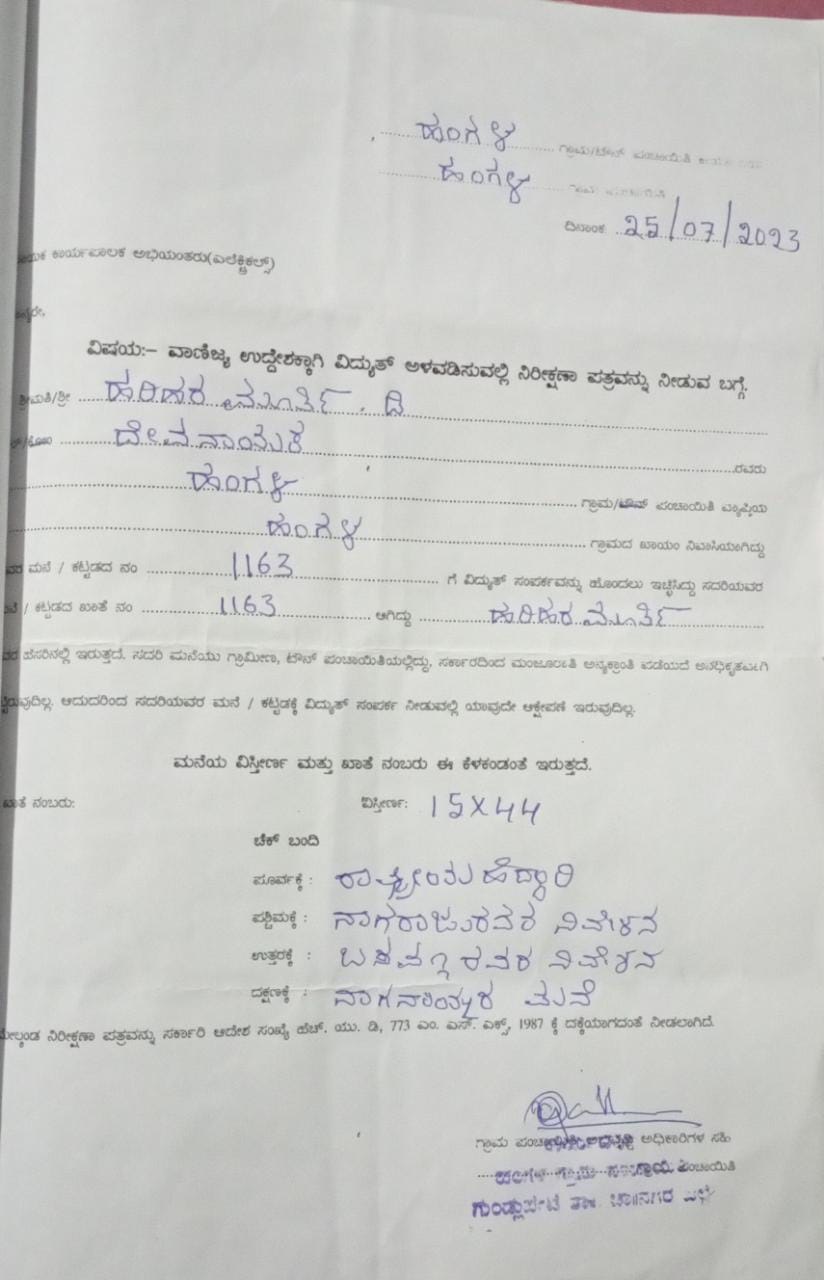 ಹಂಗಳ ಗ್ರಾಮ/ಟೌನ್ ಪಂಚಾಯಿತಿ
ಹಂಗಳ ಗ್ರಾಮ ಪಂಚಾಯಿತಿ
ದಿನಾಂಕ 25/07/2023
ಕಾರ್ಯಪಾಲಕ ಅಭಿಯಂತರು(ಎಲೆಕ್ಟ್ರಿಕಲ್ಸ್)
ವಿಷಯ:– ವಾಣಿಜ್ಯ ಉದ್ದೇಶಕ್ಕಾಗಿ ವಿದ್ಯುತ್ ಅಳವಡಿಸುವಲ್ಲಿ ನಿರೀಕ್ಷಣಾ ಪತ್ರವನ್ನು ನೀಡುವ ಬಗ್ಗೆ.
ಶ್ರೀಮತಿ/ಶ್ರೀ ಹರಿಹರ ಮೂರ್ತಿ. ದಿ
ರವರು
ಹಂಗಳ ಗ್ರಾಮ/ಟೌನ್ ಪಂಚಾಯಿತಿ ವ್ಯಾಪ್ತಿಯ
ಹಂಗಳ ಗ್ರಾಮದ ಖಾಯಂ ನಿವಾಸಿಯಾಗಿದ್ದು
ಮನೆ / ಕಟ್ಟಡದ ನಂ 1163 ಗೆ ವಿದ್ಯುತ್ ಸಂಪರ್ಕವನ್ನು ಹೊಂದಲು ಇಚ್ಛಿಸಿದ್ದು ಸದರಿಯವರ
/ ಕಟ್ಟಡದ ಖಾತೆ ನಂ 1163 ಆಗಿದ್ದು ಹರಿಹರ ಮೂರ್ತಿ
ಹೆಸರಿನಲ್ಲಿ ಇರುತ್ತದೆ. ಸದರಿ ಮನೆಯು ಗ್ರಾಮೀಣ, ಟೌನ್ ಪಂಚಾಯಿತಿಯಲ್ಲಿದ್ದು, ಸರ್ಕಾರದಿಂದ ಮಂಜೂರಾತಿ ಅನ್ಯಕ್ರಾಂತಿ ಪಡೆಯದೆ ಅನಧಿಕೃತವಾಗಿ
ಆದುದರಿಂದ ಸದರಿಯವರ ಮನೆ / ಕಟ್ಟಡಕ್ಕೆ ವಿದ್ಯುತ್ ಸಂಪರ್ಕ ನೀಡುವಲ್ಲಿ ಯಾವುದೇ ಆಕ್ಷೇಪಣೆ ಇರುವುದಿಲ್ಲ.
ಮನೆಯ ವಿಸ್ತೀರ್ಣ ಮತ್ತು ಖಾತೆ ನಂಬರು ಈ ಕೆಳಕಂಡಂತೆ ಇರುತ್ತದೆ.
ಖಾತೆ ನಂಬರು: ವಿಸ್ತೀರ್ಣ: 15X44
ಚೆಕ್ ಬಂದಿ
ಪೂರ್ವಕ್ಕೆ : ರಾಷ್ಟ್ರೀಯ ಹೆದ್ದಾರಿ
ಪಶ್ಚಿಮಕ್ಕೆ : ನಾಗರಾಜುರವರ ನಿವೇಶನ
ಉತ್ತರಕ್ಕೆ : ಬಸವಣ್ಣರವರ ನಿವೇಶನ
ದಕ್ಷಿಣಕ್ಕೆ : ಮನೆ
ಮೇಲ್ಕಂಡ ನಿರೀಕ್ಷಣಾ ಪತ್ರವನ್ನು ಸರ್ಕಾರಿ ಆದೇಶ ಸಂಖ್ಯೆ ಹೆಚ್. ಯು. ಡಿ, 773 ಎಂ. ಎಸ್. ಎಕ್ಸ್, 1987 ಕ್ಕೆ ದಕ್ಕೆಯಾಗದಂತೆ ನೀಡಲಾಗಿದೆ.
ಗ್ರಾಮ ಅಧಿಕಾರಿಗಳ ಸಹಿ
ಹಂಗಳ ಗ್ರಾಮ ಪಂಚಾಯಿತಿ
ಗುಂಡ್ಲುಪೇಟೆ ತಾ॥ ಚಾ॥ನಗರ ಜಿಲ್ಲೆ